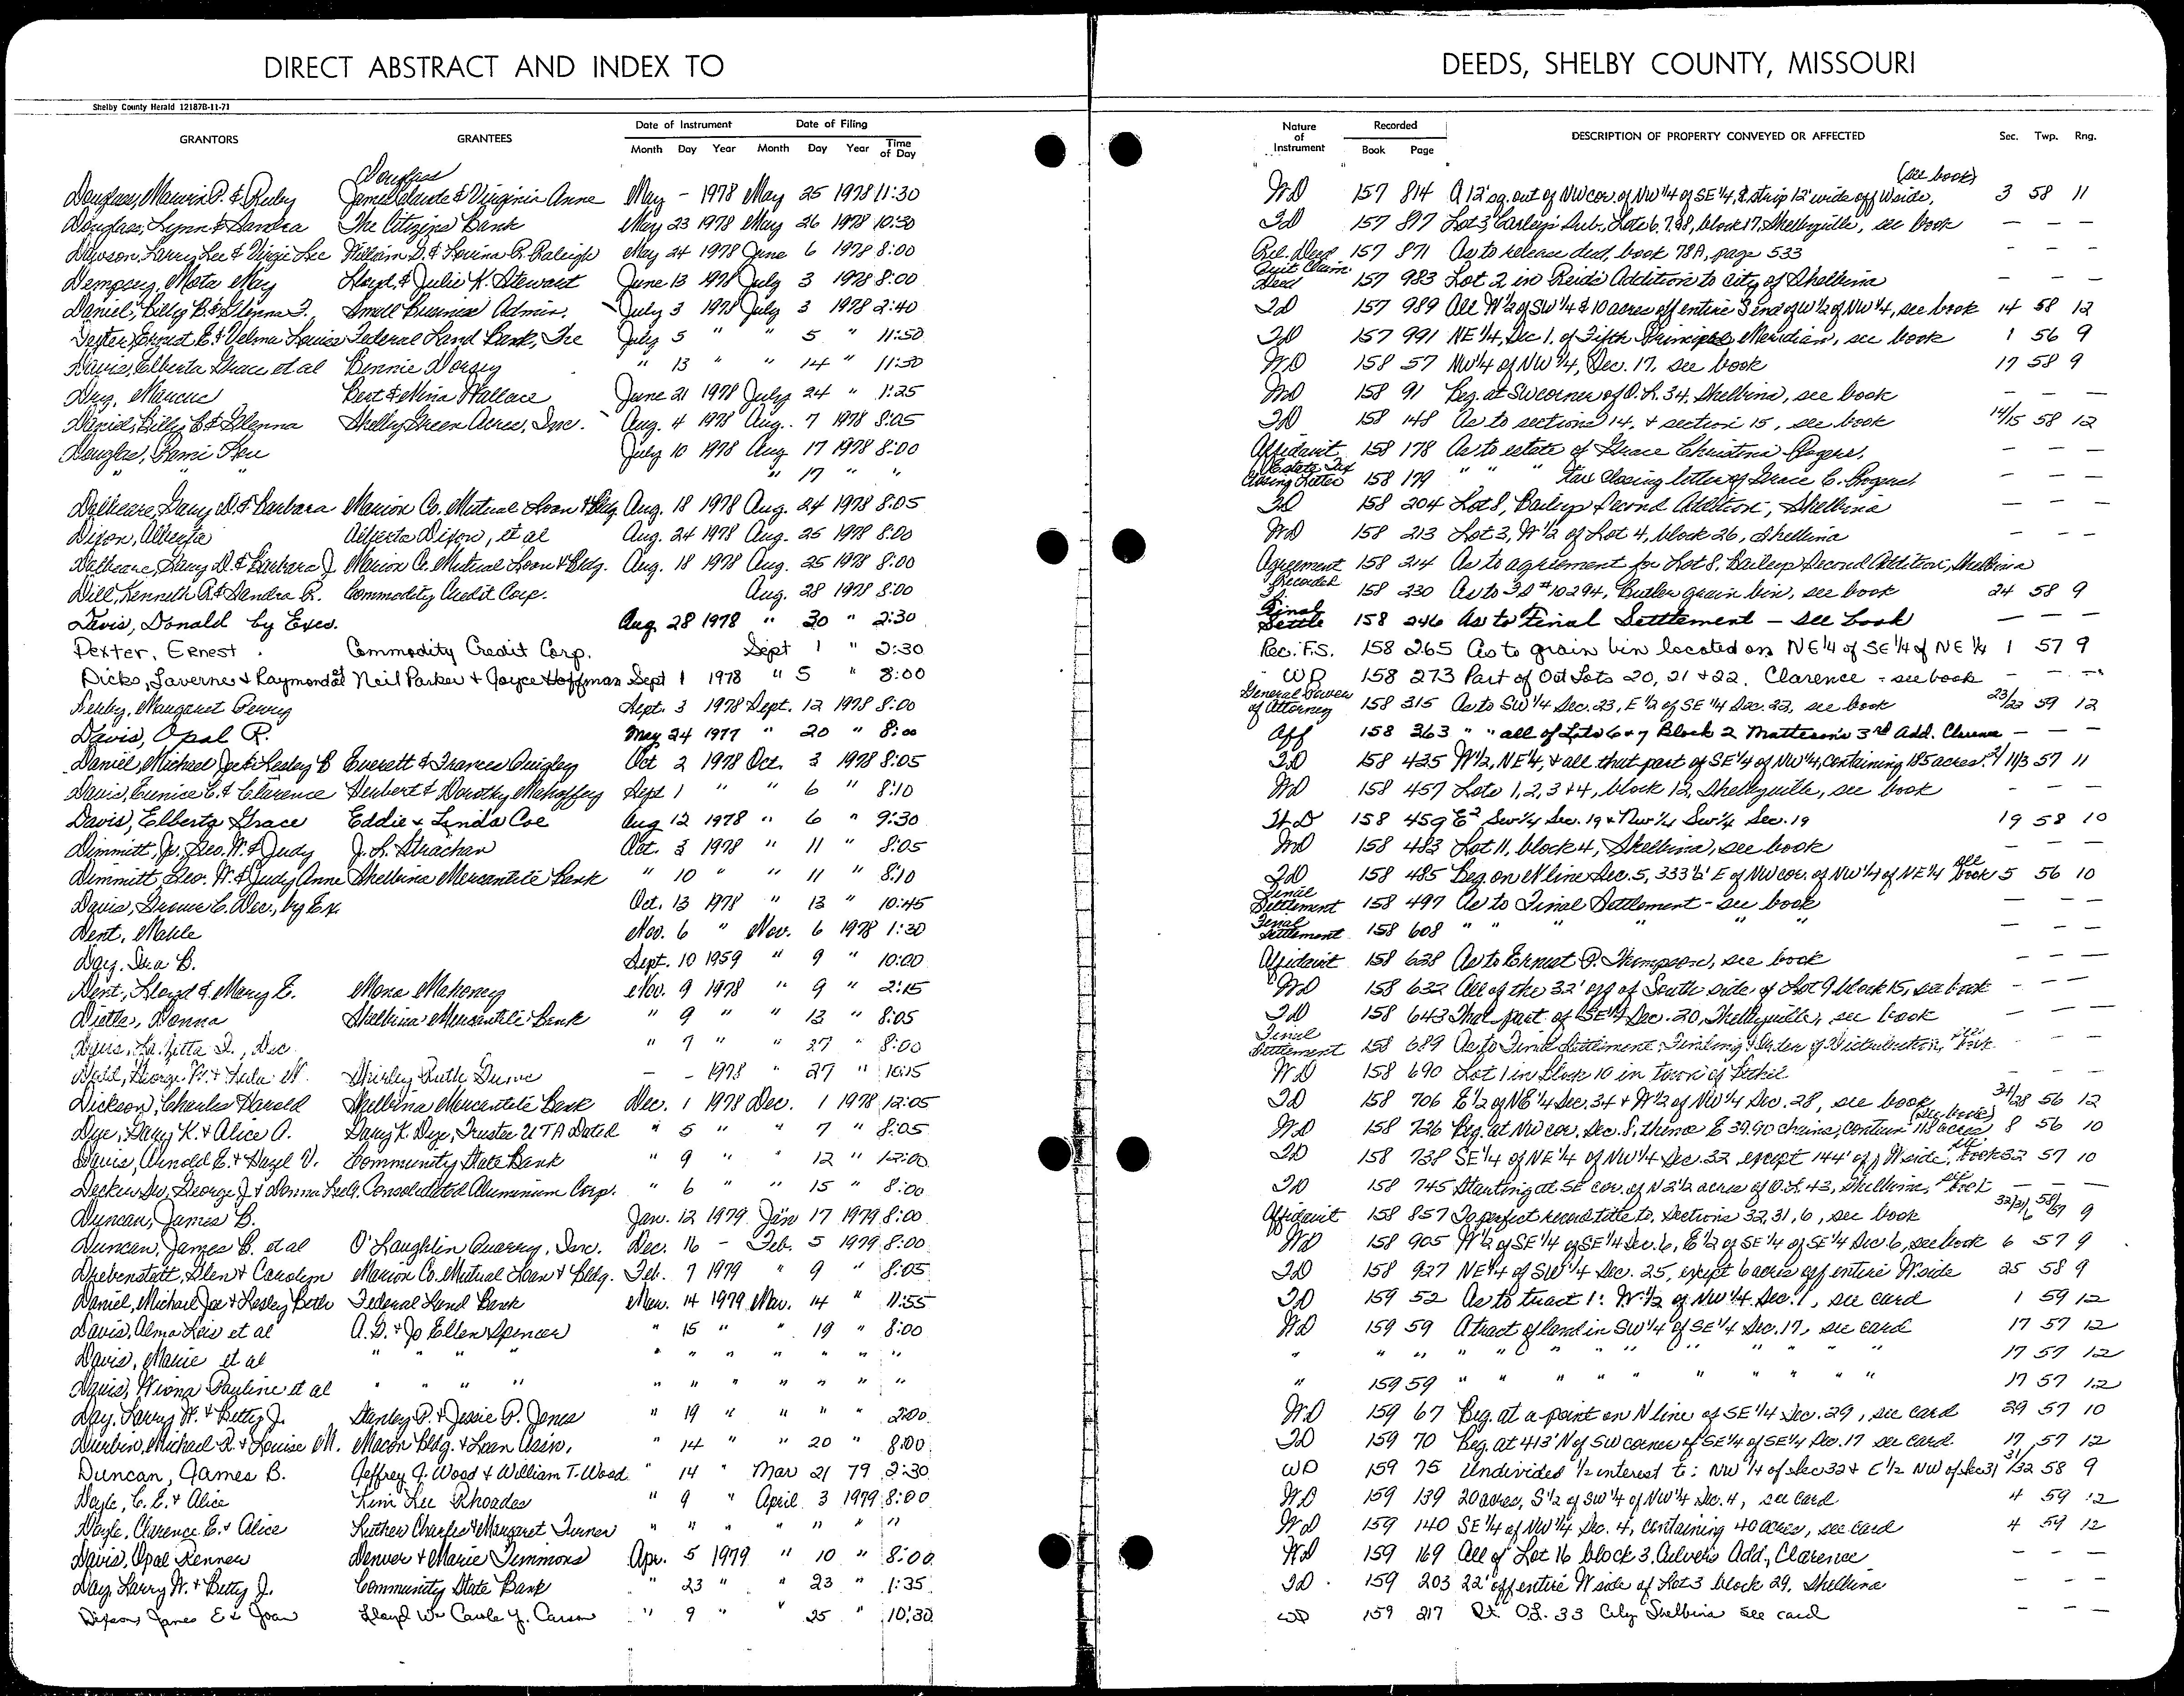 DIRECT ABSTRACT AND INDEX TO
DEEDS, SHELBY COUNTY, MISSOURI
Shelby County Herald 12187B-11-71
GRANTORS GRANTEES Date of Instrument Month Day Year Date of Filing Month Day Year Time of Day
Nature of Instrument Recorded Book Page DESCRIPTION OF PROPERTY CONVEYED OR AFFECTED Sec. Twp. Rng.
Douglass (see book)
Douglass, Marvin P. & Ruby James Claude & Virginia Anne May – 1978 May 25 1978 11:30 WD 157 814 A 12' sq. out of NW cor. of NW 1/4 of SE 1/4, & strip 12' wide off W side, 3 58 11
Douglass, Lynn & Sandra The Citizens Bank May 23 1978 May 26 1978 10:30 TD 157 817 Lot 3 Earley's Sub., Lots 6, 7 & 8, block 17, Shelbyville, see book — — —
Dawson, Larry Lee & Virgie Lee William D. & Lovina R. Raleigh May 24 1978 June 6 1978 8:00 Rel. Deed 157 871 As to release deed, book 78A, page 533 — — —
Dempsey, Mata May Lloyd & Julie K. Stewart June 13 1978 July 3 1978 8:00 Quit Claim Deed 157 983 Lot 2 in Reids Addition to city of Shelbina — — —
Daniel, Billy B. & Glenna F. Small Business Admin. July 3 1978 July 3 1978 2:40 TD 157 989 All W 1/2 of SW 1/4 & 10 acres off entire S end of W 1/2 of NW 1/4, see book 14 58 12
Dexter, Ernest E. & Velma Louise Federal Land Bank, The July 5 " " 5 " 11:50 TD 157 991 NE 1/4, Sec 1, of Fifth Principal Meridian, see book 1 56 9
Davis, Elberta Grace et al Bennie Dorsey " 13 " " 14 " 11:30 WD 158 57 NW 1/4 of NW 1/4, Sec. 17, see book 17 58 9
Day, Marcus Bert & Mina Wallace June 21 1978 July 24 " 1:25 WD 158 91 Beg. at SW corner of O.L. 34, Shelbina, see book — — —
Daniel, Billy B. & Glenna Shelby Green Acres, Inc. Aug. 4 1978 Aug. 7 1978 8:05 TD 158 148 As to sections 14, & section 15, see book 14/15 58 12
Douglas, Rami Lou July 10 1978 Aug 17 1978 8:00 Affidavit 158 178 As to estate of Grace Christina Rogers, — — —
" " " " 17 " " Estate Tax Closing Letter 158 179 " " " Tax Closing letter of Grace C. Rogers — — —
Dalticare, Gary D. & Barbara Marion Co. Mutual Loan & Bldg. Aug. 18 1978 Aug. 24 1978 8:05 TD 158 204 Lot 8, Baileys Second Addition, Shelbina
Dixon, Alberta Alberta Dixon, et al Aug. 24 1978 Aug. 25 1978 8:00 WD 158 213 Lot 3, W 1/2 of Lot 4, block 26, Shelbina — — —
Barbara J. Marion Co. Mutual Loan & Bldg. Aug. 18 1978 Aug. 25 1978 8:00 Agreement 158 214 As to agreement for Lot 8, Baileys Second Addition, Shelbina
Dill, Kenneth R. & Sandra R. Commodity Credit Corp. Aug. 28 1978 8:00 Recorded 158 230 As to #10294, Butler grain bin, see book 24 58 9
Davis, Donald by Exec. Aug 28 1978 " 30 " 2:30 Final Settle 158 246 As to Final Settlement – see book — — —
Dexter, Ernest Commodity Credit Corp. Sept 1 " 2:30 Rec. F.S. 158 265 As to grain bin located on NE 1/4 of SE 1/4 of NE 1/4 1 57 9
Dicks, Laverne & Raymond et al Neil Parker & Joyce Hoffman Sept 1 1978 " 5 " 8:00 WD 158 273 Part of Out Lots 20, 21 & 22, Clarence – see book — — —
Margaret Perry Sept. 3 1978 Sept. 12 1978 8:00 General Power of Attorney 158 315 As to SW 1/4 Sec. 23, E 1/2 of SE 1/4 Sec. 22, see book 23/22 59 12
Davis, Opal R. May 24 1977 " 20 " 8:00 Aff 158 363 " " all of Lots 6 & 7 Block 2 Matteson's 3rd Add. Clarence — — —
Daniel, Michael Joe & Lesley B Everett & Frances Quigley Oct 2 1978 Oct. 3 1978 8:05 TD 158 425 W 1/2, NE 1/4, & all that part of SE 1/4 of NW 1/4, containing 185 acres 2/11/3 57 11
Davis, Eunice E. & Clarence Herbert & Dorothy Mahaffey Sept 1 " " 6 " 8:10 WD 158 457 Lots 1, 2, 3 & 4, block 12, Shelbyville, see book — — —
Davis, Elberta Grace Eddie & Linda Coe Aug 12 1978 " 6 " 9:30 W.D 158 459 E2 SW 1/4 Sec. 19 & NW 1/4 SW 1/4 Sec. 19 19 58 10
Dimmitt, Jr., Geo. W. & Judy J. L. Strachan Oct. 3 1978 " 11 " 8:05 WD 158 483 Lot 11, block 4, Shelbina, see book — — —
Dimmitt, Geo. W. & Judy Anne Shelbina Mercantile Bank " 10 " " 11 " 8:10 TD 158 485 Beg. on N line Sec. 5, 333 1/2' E of NW cor. of NW 1/4 of NE 1/4 see book 5 56 10
Davis, C. Dec., by Ex. Oct. 13 1978 " 13 " 10:45 Final Settlement 158 497 As to Final Settlement – see book — — —
Dent, Mable Nov. 6 " Nov. 6 1978 1:30 Final Settlement 158 608 " " " " " — — —
Day, Ina B. Sept. 10 1959 " 9 " 10:00 Affidavit 158 628 As to Ernest P. Thompson, see book — — —
Dent, Lloyd & Mary E. Mona Mahoney Nov. 9 1978 " 9 " 2:15 WD 158 632 All of the 32' off of South side of Lot 9 block 15, see book — — —
Dietle, Donna Shelbina Mercantile Bank " 9 " " 13 " 8:05 TD 158 643 That part of SE 1/4 Sec. 20, Shelbyville, see book — — —
Dyer, Dec. " 7 " " 27 " 8:00 Final Settlement 158 689 As to Final Settlement, Finding & Order of Distribution, see book — — —
George W. & Lula N. Shirley Ruth – – 1978 " 27 " 10:15 WD 158 690 Lot 1 in block 10 in town of Bethel — — —
Dickson, Charles Harold Shelbina Mercantile Bank Dec. 1 1978 Dec. 1 1978 12:05 TD 158 706 E 1/2 of NE 1/4 Sec. 34 & W 1/2 of NW 1/4 Sec. 28, see book 34/28 56 12
Dye, Gary K. & Alice A. Gary K. Dye, Trustee UTA Dated " 5 " " 7 " 8:05 WD 158 726 Beg. at NW cor. Sec. 8, thence E 39.90 chains, contain 118 acres (see book) 8 56 10
Davis, Arnold E. & Hazel V. Community State Bank " 9 " " 12 " 12:00 TD 158 738 SE 1/4 of NE 1/4 of NW 1/4 Sec. 32 except 144' off W side, see book 32 57 10
Decker Sr., George J. & Donna Lee Consolidated Aluminium Corp. " 6 " " 15 " 8:00 TD 158 745 Starting at SE cor. of N 2 1/2 acres of O.L. 43, Shelbina, see book — — —
Duncan, James B. Jan. 12 1979 Jan 17 1979 8:00 Affidavit 158 857 To perfect record title to, Sections 32, 31, 6, see book 32/31/6 58/57 9
Duncan, James B. et al O'Laughlin Quarry, Inc. Dec. 16 – Feb. 5 1979 8:00 WD 158 905 W 1/2 of SE 1/4 of SE 1/4 Sec. 6, E 1/2 of SE 1/4 of SE 1/4 Sec 6, see book 6 57 9
Drebenstedt, Glen & Carolyn Marion Co. Mutual Loan & Bldg. Feb. 7 1979 " 9 " 8:05 TD 158 927 NE 1/4 of SW 1/4 Sec. 25, except 6 acres off entire W side 25 58 9
Daniel, Michael Joe & Lesley Beth Federal Land Bank Mar. 14 1979 Mar. 14 " 11:55 TD 159 52 As to tract 1: W 1/2 of NW 1/4 Sec. 1, see card 1 59 12
Davis, Alma Lois et al A.G. & Jo Ellen Spencer " 15 " " 19 " 8:00 WD 159 59 A tract of land in SW 1/4 of SE 1/4 Sec. 17, see card 17 57 12
Davis, Marie et al " " " " " " " " " " " " " " " " " " 17 57 12
Davis, Wiona Pauline et al " " " " " " " " " " " " 159 59 " " " " " " 17 57 12
Day, Larry W. & Betty J. Stanley P. & Jessie P. Jones " 19 " " " " 2:00 WD 159 67 Beg. at a point on N line of SE 1/4 Sec. 29, see card 29 57 10
Durbin, Michael R. & Louise M. Macon Bldg. & Loan Assn. " 14 " 20 " 8:00 TD 159 70 Beg. at 413' N of SW corner of SE 1/4 of SE 1/4 Sec. 17 see card. 17 57 12
Duncan, James B. Jeffrey J. Wood & William T. Wood " 14 " Mar 21 79 2:30 WD 159 75 Undivided 1/2 interest to: NW 1/4 of Sec 32 & E 1/2 NW of Sec 31 31/32 58 9
Doyle, C. E. & Alice Kim Lee Rhoades " 9 " April 3 1979 8:00 WD 159 139 20 acres, S 1/2 of SW 1/4 of NW 1/4 Sec. 4, see card 4 59 12
Doyle, Clarence E. & Alice Luther Charles & Margaret Turner " " " " " " " WD 159 140 SE 1/4 of NW 1/4 Sec. 4, containing 40 acres, see card 4 59 12
Davis, Opal Renner Denver & Marie Timmons Apr. 5 1979 " 10 " 8:00 WD 159 169 All of Lot 16 block 3, Culvers Add., Clarence — — —
Day, Larry W. & Betty J. Community State Bank " 23 " " 23 " 1:35 TD 159 203 22' off entire W side of Lot 3 block 29, Shelbina — — —
Dixson, James E & Joan Lloyd Wm Carole Y. Carson " 9 " " 25 " 10:30 WD 159 217 Pt OL. 33 City Shelbina see card — — —